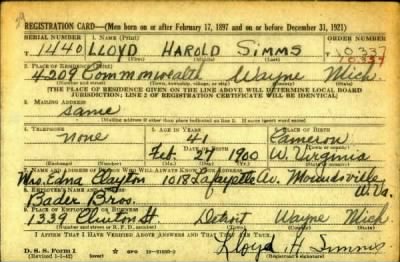 REGISTRATION CARD—(Men born on or after February 17, 1897 and on or before December 31, 1921)
SERIAL NUMBER 1. NAME (Print) ORDER NUMBER
1440 LLOYD HAROLD SIMMS 10337
(First) (Middle) (Last) 10339
2. PLACE OF RESIDENCE (Print)
4209 Commonwealth Wayne Mich.
(Number and street) (Town, township, village, or city) (County) (State)
[THE PLACE OF RESIDENCE GIVEN ON THE LINE ABOVE WILL DETERMINE LOCAL BOARD
JURISDICTION; LINE 2 OF REGISTRATION CERTIFICATE WILL BE IDENTICAL]
3. MAILING ADDRESS
Same
(Mailing address if other than place indicated on line 2. If same insert word same)
4. TELEPHONE 5. AGE IN YEARS 6. PLACE OF BIRTH
none 41 Cameron
DATE OF BIRTH (Town or county)
Feb. 27 1900 W. Virginia
(Exchange) (Number) (Mo.) (Day) (Yr.) (State or country)
7. NAME AND ADDRESS OF PERSON WHO WILL ALWAYS KNOW YOUR ADDRESS
Mrs. Edna Clayton 1018 Lafayette Av. Moundsville W. Va.
8. EMPLOYER'S NAME AND ADDRESS
Bader Bros.
9. PLACE OF EMPLOYMENT OR BUSINESS
1339 Clinton St. Detroit Wayne Mich
(Number and street or R. F. D. number) (Town) (County) (State)
I AFFIRM THAT I HAVE VERIFIED ABOVE ANSWERS AND THAT THEY ARE TRUE.
D. S. S. Form 1 Lloyd H. Simms
(Revised 1-1-42) (over) (Registrant's signature)